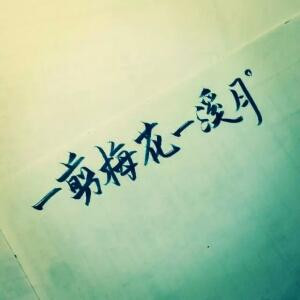 一剪梅花一溪月。